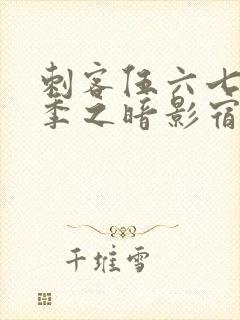 刺客伍六七
季之暗影宿
千堆雪